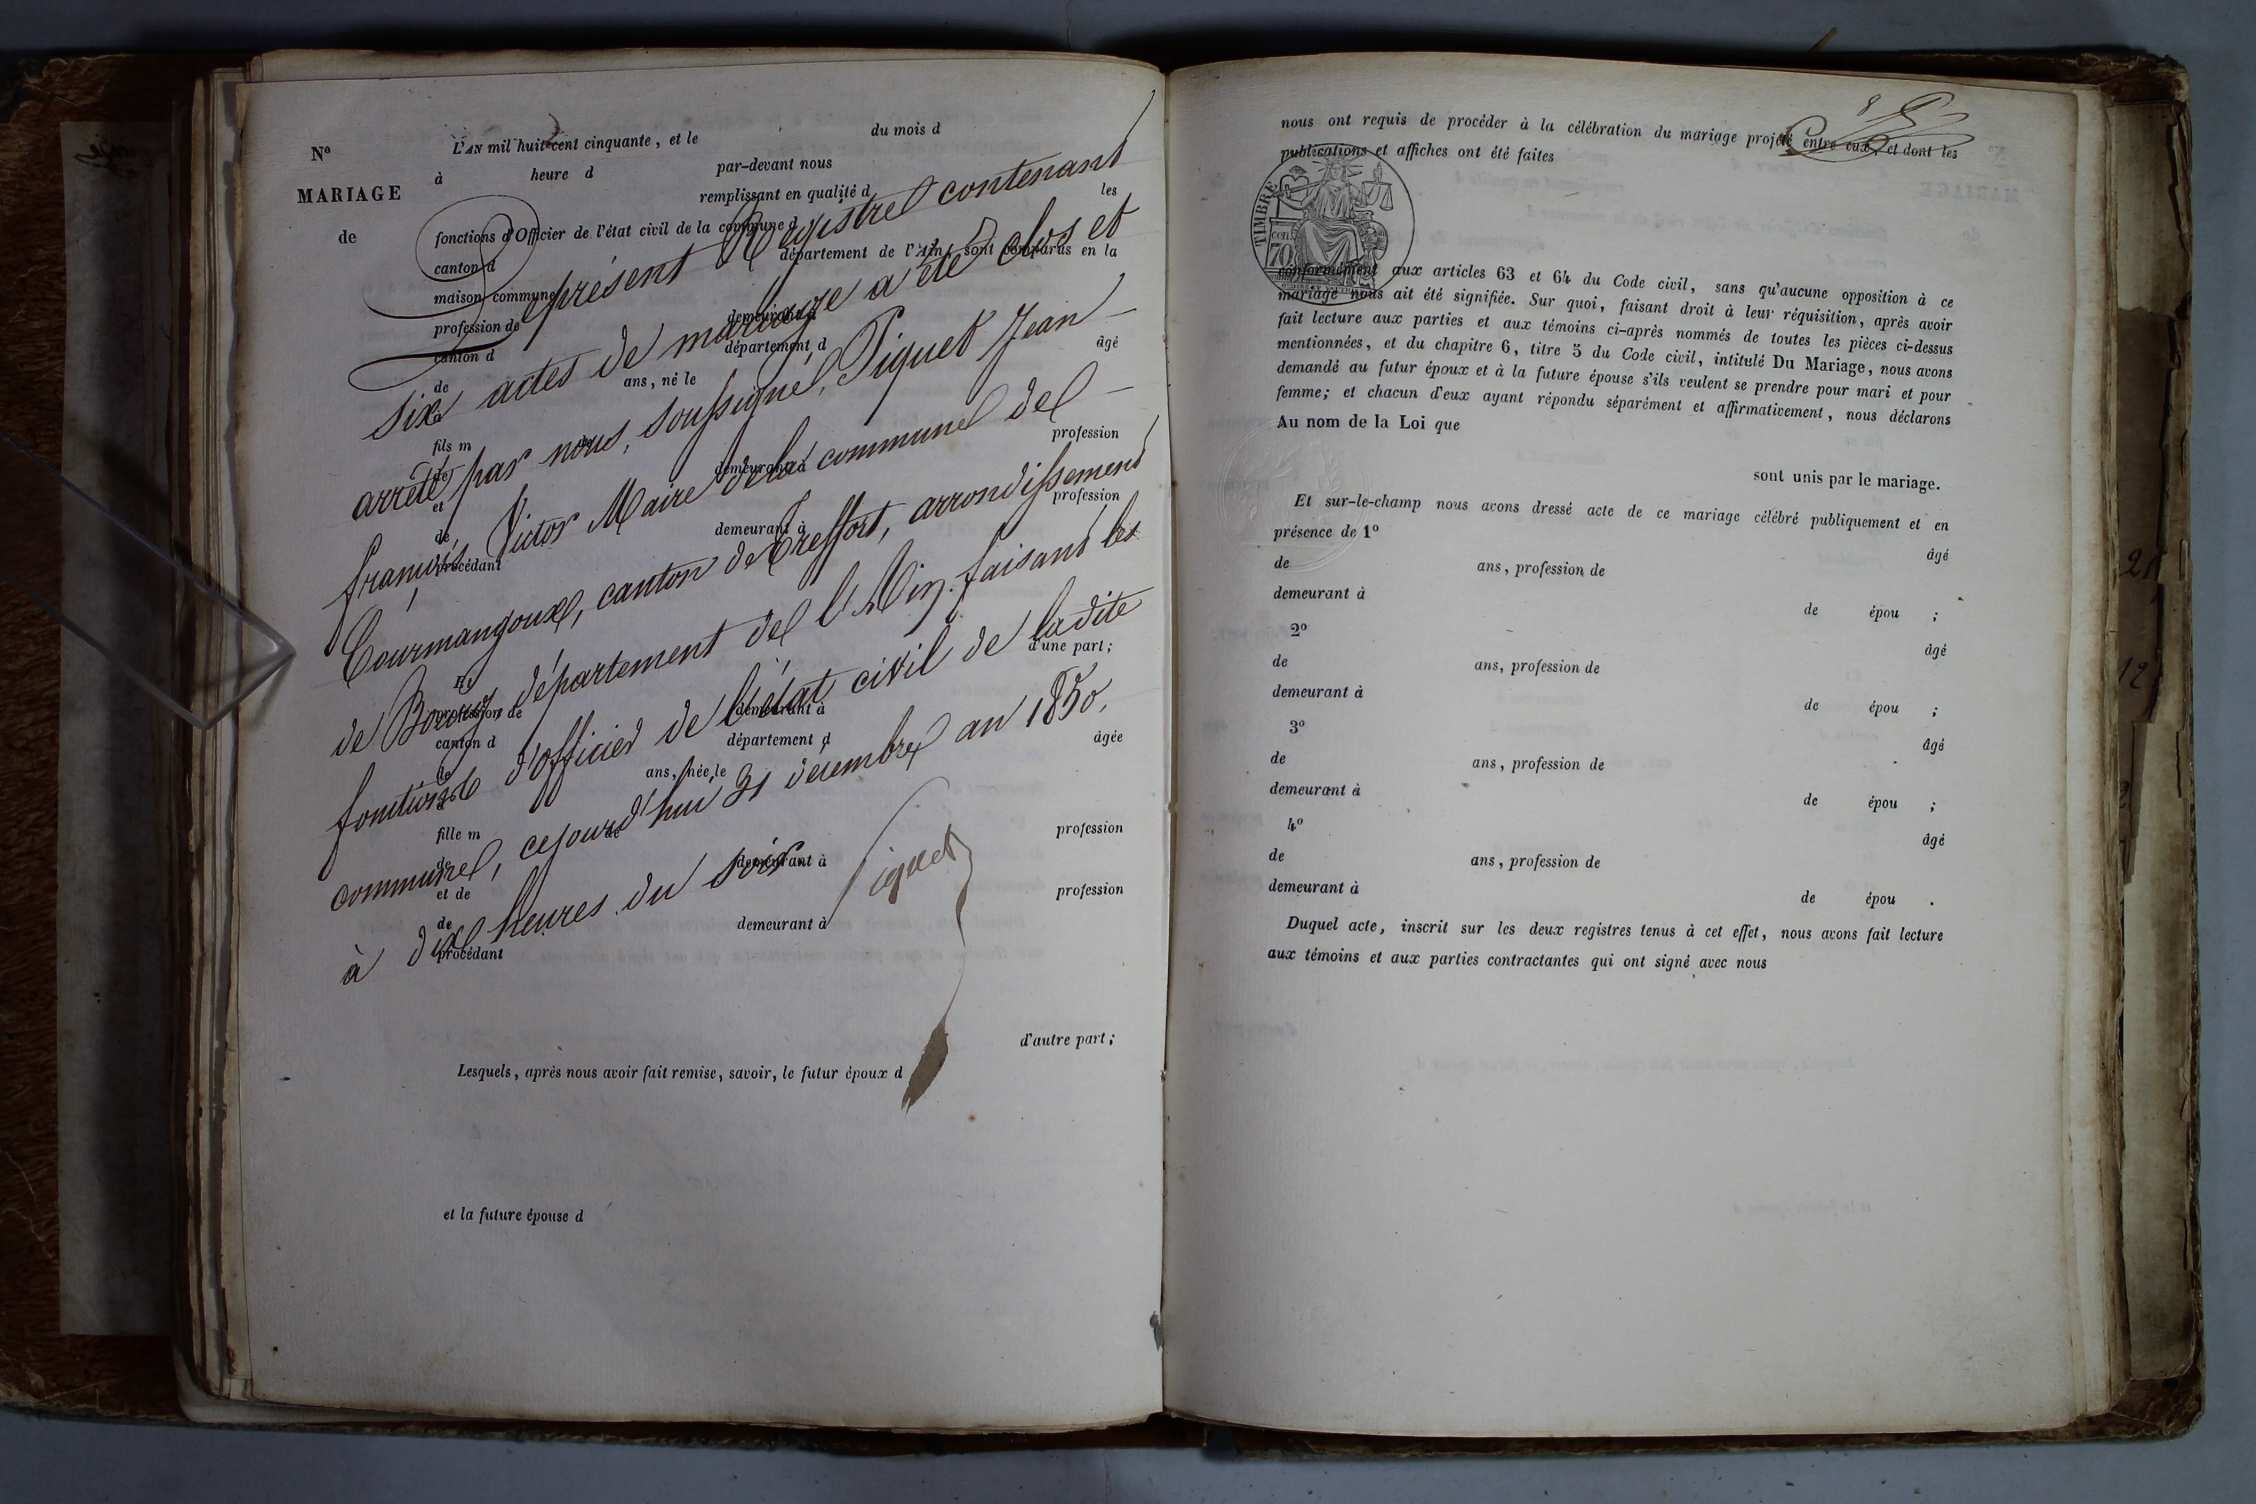 Nº
MARIAGE
de
L'AN mil huit cent cinquante, et le du mois d
à heure d par-devant nous
remplissant en qualité d les
fonctions d'Officier de l'état civil de la commune d
canton d département de l'Ain, sont comparus en la
maison commune
profession de demeurant à
canton d département d âgé
de ans, né le
de
fils m de profession
de demeurant à
et profession
de demeurant à
procédant
d'une part;
Et
profession de demeurant à
canton d département d âgée
de ans, née le
à
fille m de profession
de demeurant à
et de profession
de demeurant à
procédant
d'autre part;
Lesquels, après nous avoir fait remise, savoir, le futur époux d
et la future épouse d
Le présent Registre contenant
six actes de mariage a été clos et
arrêté par nous, soussigné, Piquet Jean
françois Victor Maire de la commune de
Courmangoux, canton de Treffort, arrondissement
de Bourg, département de l'Ain, faisant les
fonctions d'officier de l'état civil de ladite
commune, cejourd'hui 31 décembre an 1850,
à dix heures du soir
Piquet
nous ont requis de procéder à la célébration du mariage projeté entre eux, et dont les
publications et affiches ont été faites
TIMBRE
70
conformément aux articles 63 et 64 du Code civil, sans qu'aucune opposition à ce
mariage nous ait été signifiée. Sur quoi, faisant droit à leur réquisition, après avoir
fait lecture aux parties et aux témoins ci-après nommés de toutes les pièces ci-dessus
mentionnées, et du chapitre 6, titre 5 du Code civil, intitulé Du Mariage, nous avons
demandé au futur époux et à la future épouse s'ils veulent se prendre pour mari et pour
femme; et chacun d'eux ayant répondu séparément et affirmativement, nous déclarons
Au nom de la Loi que
sont unis par le mariage.
Et sur-le-champ nous avons dressé acte de ce mariage célébré publiquement et en
présence de 1º âgé
de ans, profession de
demeurant à de épou ;
2º âgé
de ans, profession de
demeurant à de épou ;
3º âgé
de ans, profession de
demeurant à de épou ;
4º âgé
de ans, profession de
demeurant à de épou .
Duquel acte, inscrit sur les deux registres tenus à cet effet, nous avons fait lecture
aux témoins et aux parties contractantes qui ont signé avec nous